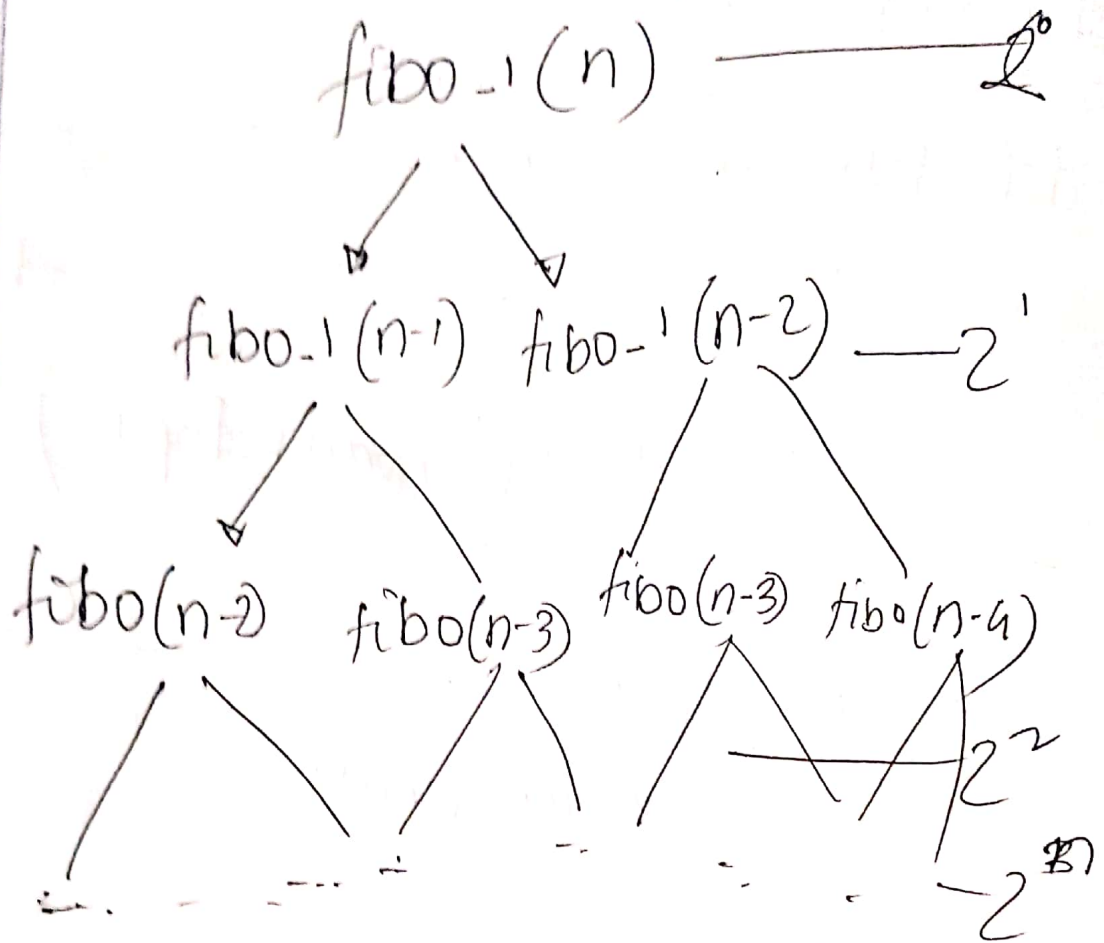 fibo_1(n) — 2⁰
fibo_1(n-1) fibo_1(n-2) — 2¹
fibo(n-2) fibo(n-3) fibo(n-3) fibo(n-4)
— 2²
— 2